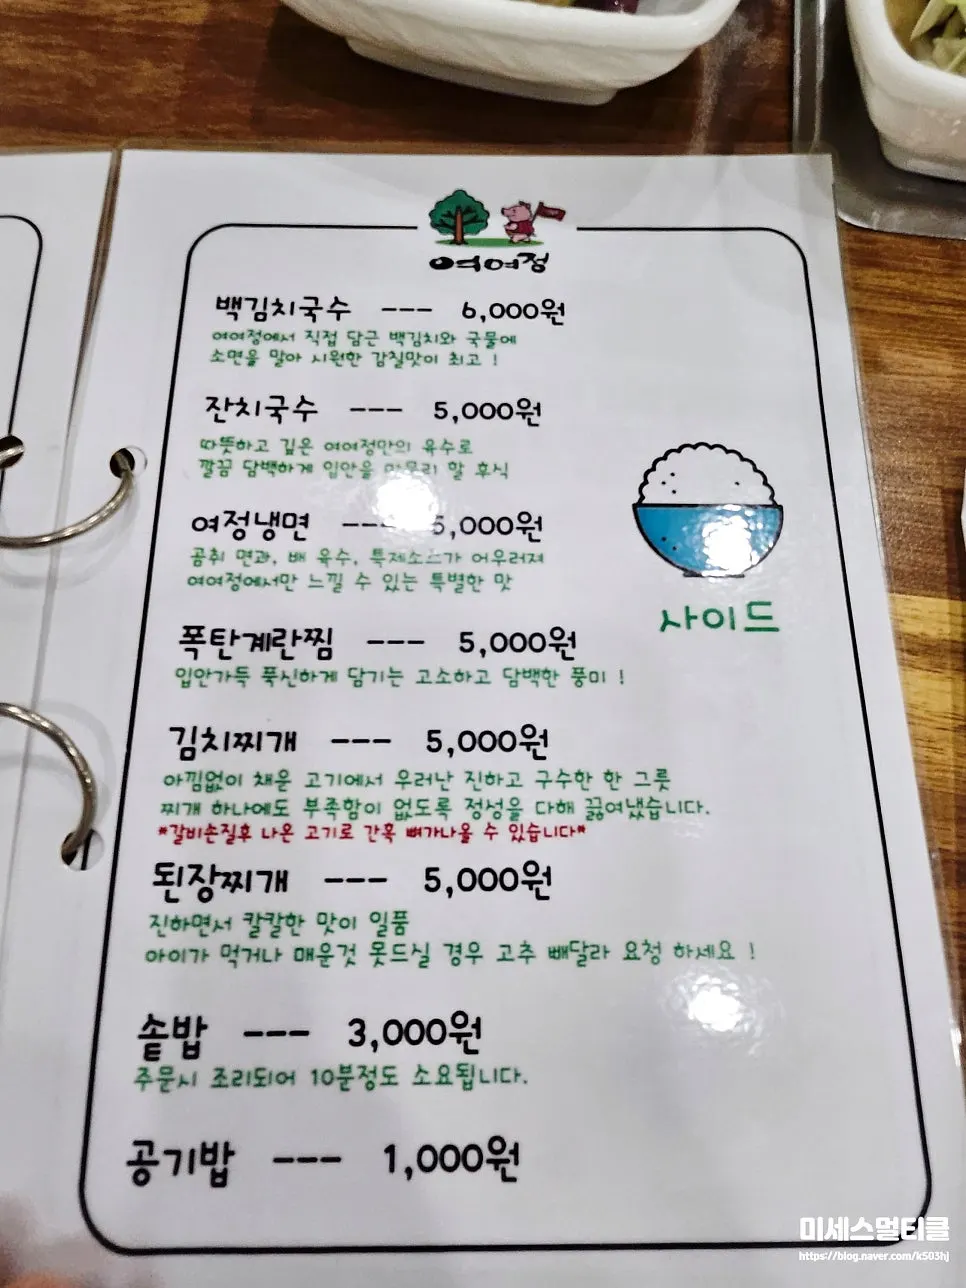 여여정
백김치국수 --- 6,000원
여여정에서 직접 담근 백김치와 국물에
소면을 말아 시원한 감칠맛이 최고 !
잔치국수 --- 5,000원
따뜻하고 깊은 여여정만의 육수로
깔끔 담백하게 입안을 마무리 할 후식
여정냉면 --- 5,000원
곰취 면과, 배 육수, 특제소스가 어우러져
여여정에서만 느낄 수 있는 특별한 맛
사이드
폭탄계란찜 --- 5,000원
입안가득 푹신하게 담기는 고소하고 담백한 풍미 !
김치찌개 --- 5,000원
아낌없이 채운 고기에서 우러난 진하고 구수한 한 그릇
찌개 하나에도 부족함이 없도록 정성을 다해 끓여냈습니다.
*갈비손질후 나온 고기로 간혹 뼈가나올 수 있습니다*
된장찌개 --- 5,000원
진하면서 칼칼한 맛이 일품
아이가 먹거나 매운것 못드실 경우 고추 빼달라 요청 하세요 !
솥밥 --- 3,000원
주문시 조리되어 10분정도 소요됩니다.
공기밥 --- 1,000원
미세스멀티클
https://blog.naver.com/k503hj